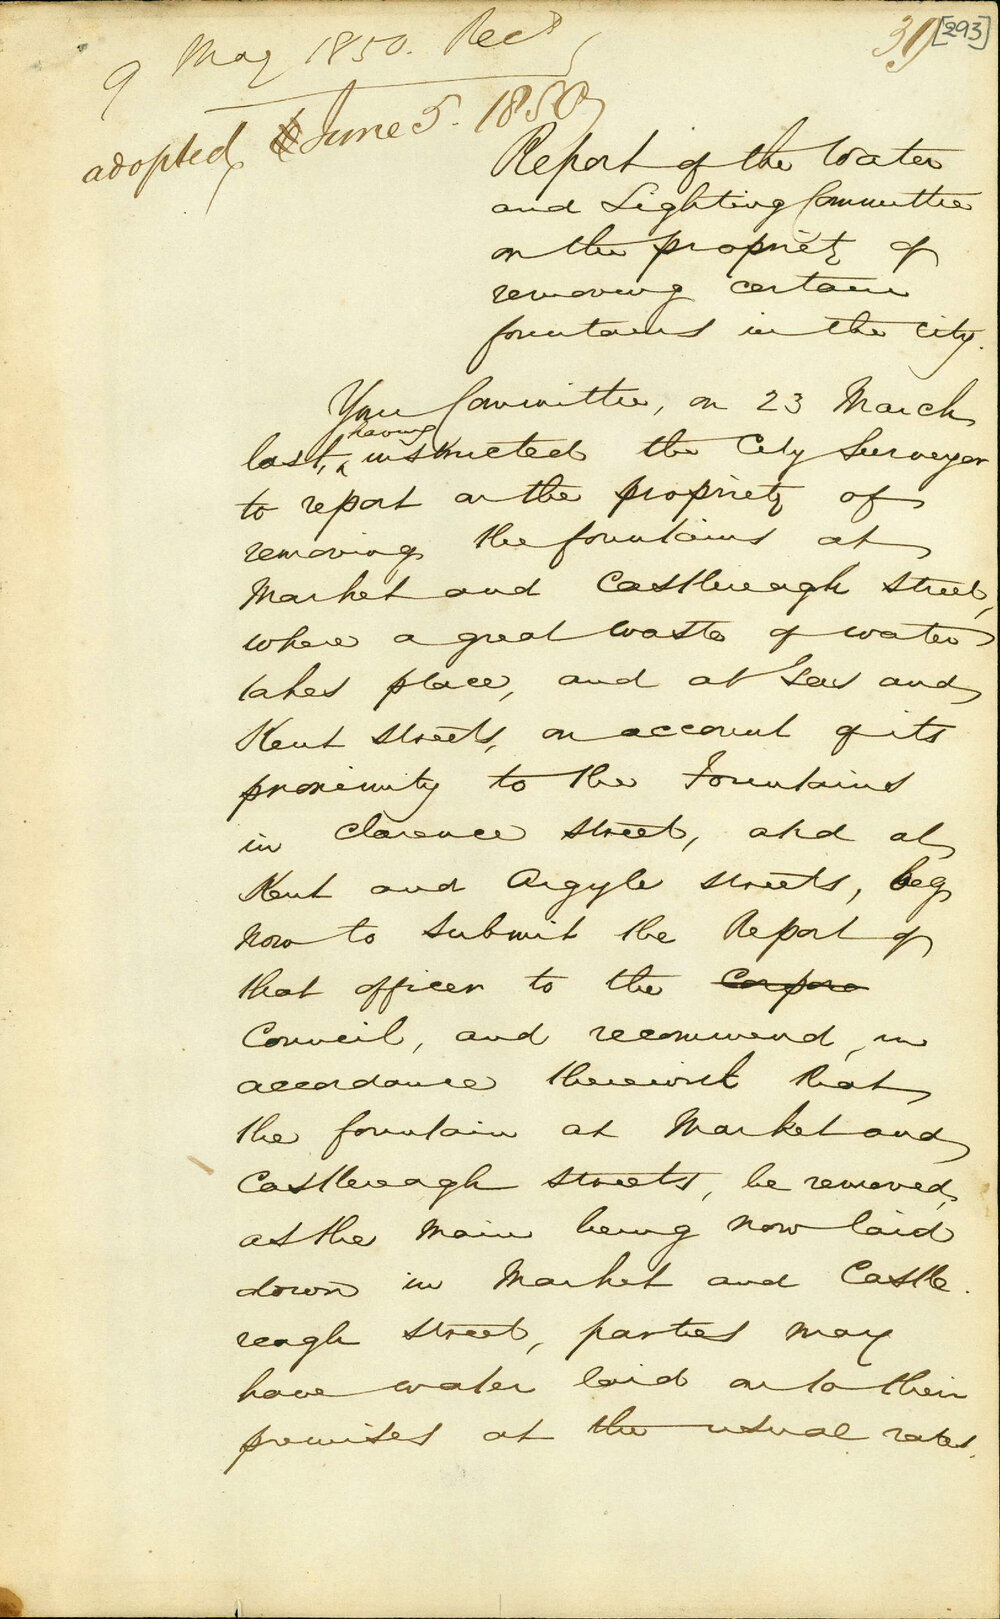 9 May 1850. Recd
39 [293]
adopted June 5. 1850
Report of the Water
and Lighting Committee
on the propriety of
removing certain
fountains in the city.
Your Committee, on 23 March
last, having instructed the City Surveyor
to report on the propriety of
removing the fountains at
Market and Castlereagh Street,
where a great waste of water
takes place, and at Sus and
Kent Streets, on account of its
proximity to the Fountains
in Clarence Street, and at
Kent and Argyle Streets, beg
now to submit the Report of
that officer to the Corpora
Council, and recommend, in
accordance therewith that
the fountain at Market and
Castlereagh Streets, be removed,
as the main being now laid
down in Market and Castle.
reagh Street, parties may
have water laid on to their
premises at the usual rates.